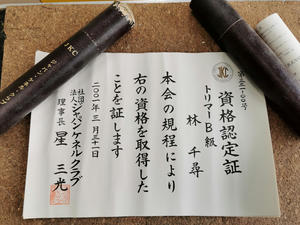 資格認定証
トリマーB級
林 千尋
本会の規程により
右の資格を取得した
ことを証します
二〇〇一年 三月三十一日
社団法人 ジャパンケネルクラブ
理事長 星 三光
JKC